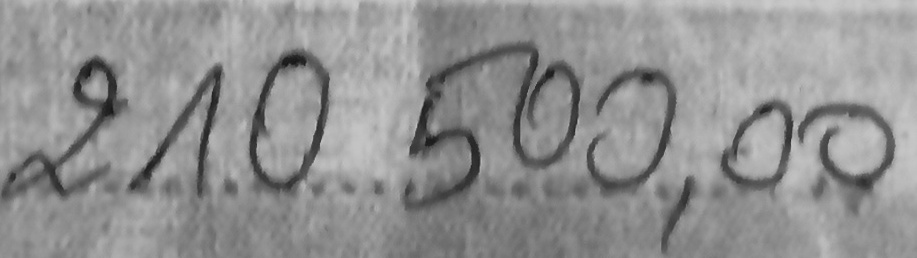 210 500,00